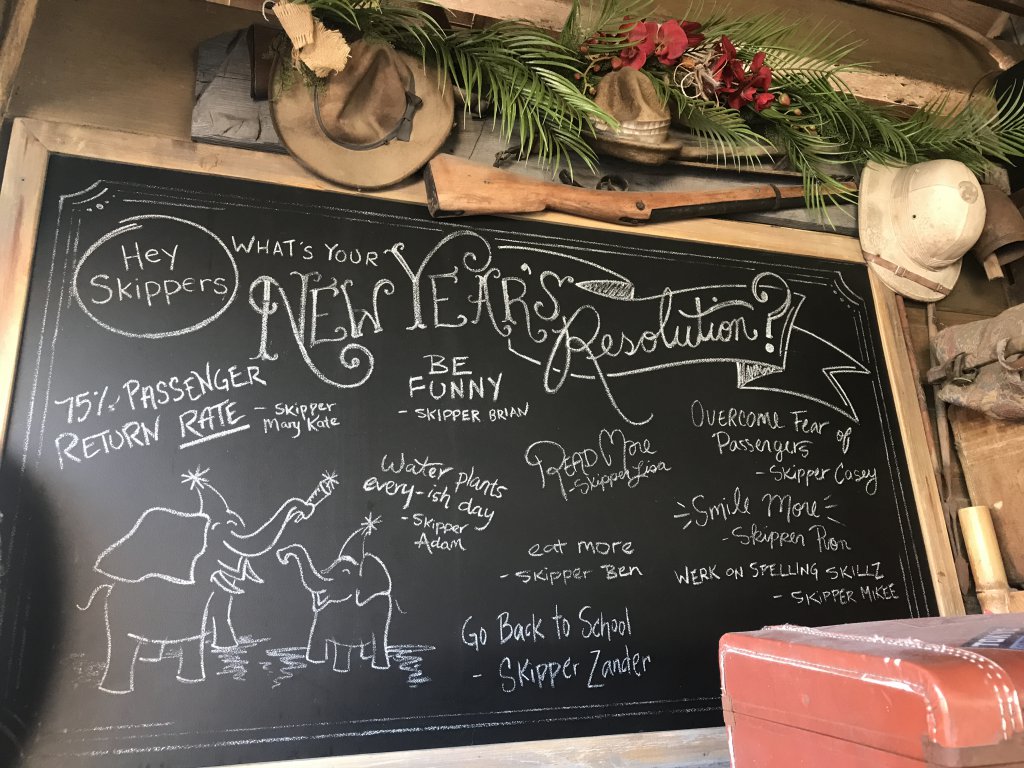 Hey
Skippers
WHAT'S YOUR
NEW YEAR'S
Resolution?
75% PASSENGER
RETURN RATE - SKIPPER
Mary Kate
BE
FUNNY
- SKIPPER BRIAN
Water plants
every-ish day
- Skipper
Adam
READ More
- Skipper Lisa
eat more
- SKIPPER BEN
Go Back to School
- Skipper Zander
OVERCOME Fear of
Passengers
- Skipper Casey
Smile More
- Skipper
WERK ON SPELLING SKILLZ
- SKIPPER MIKEE